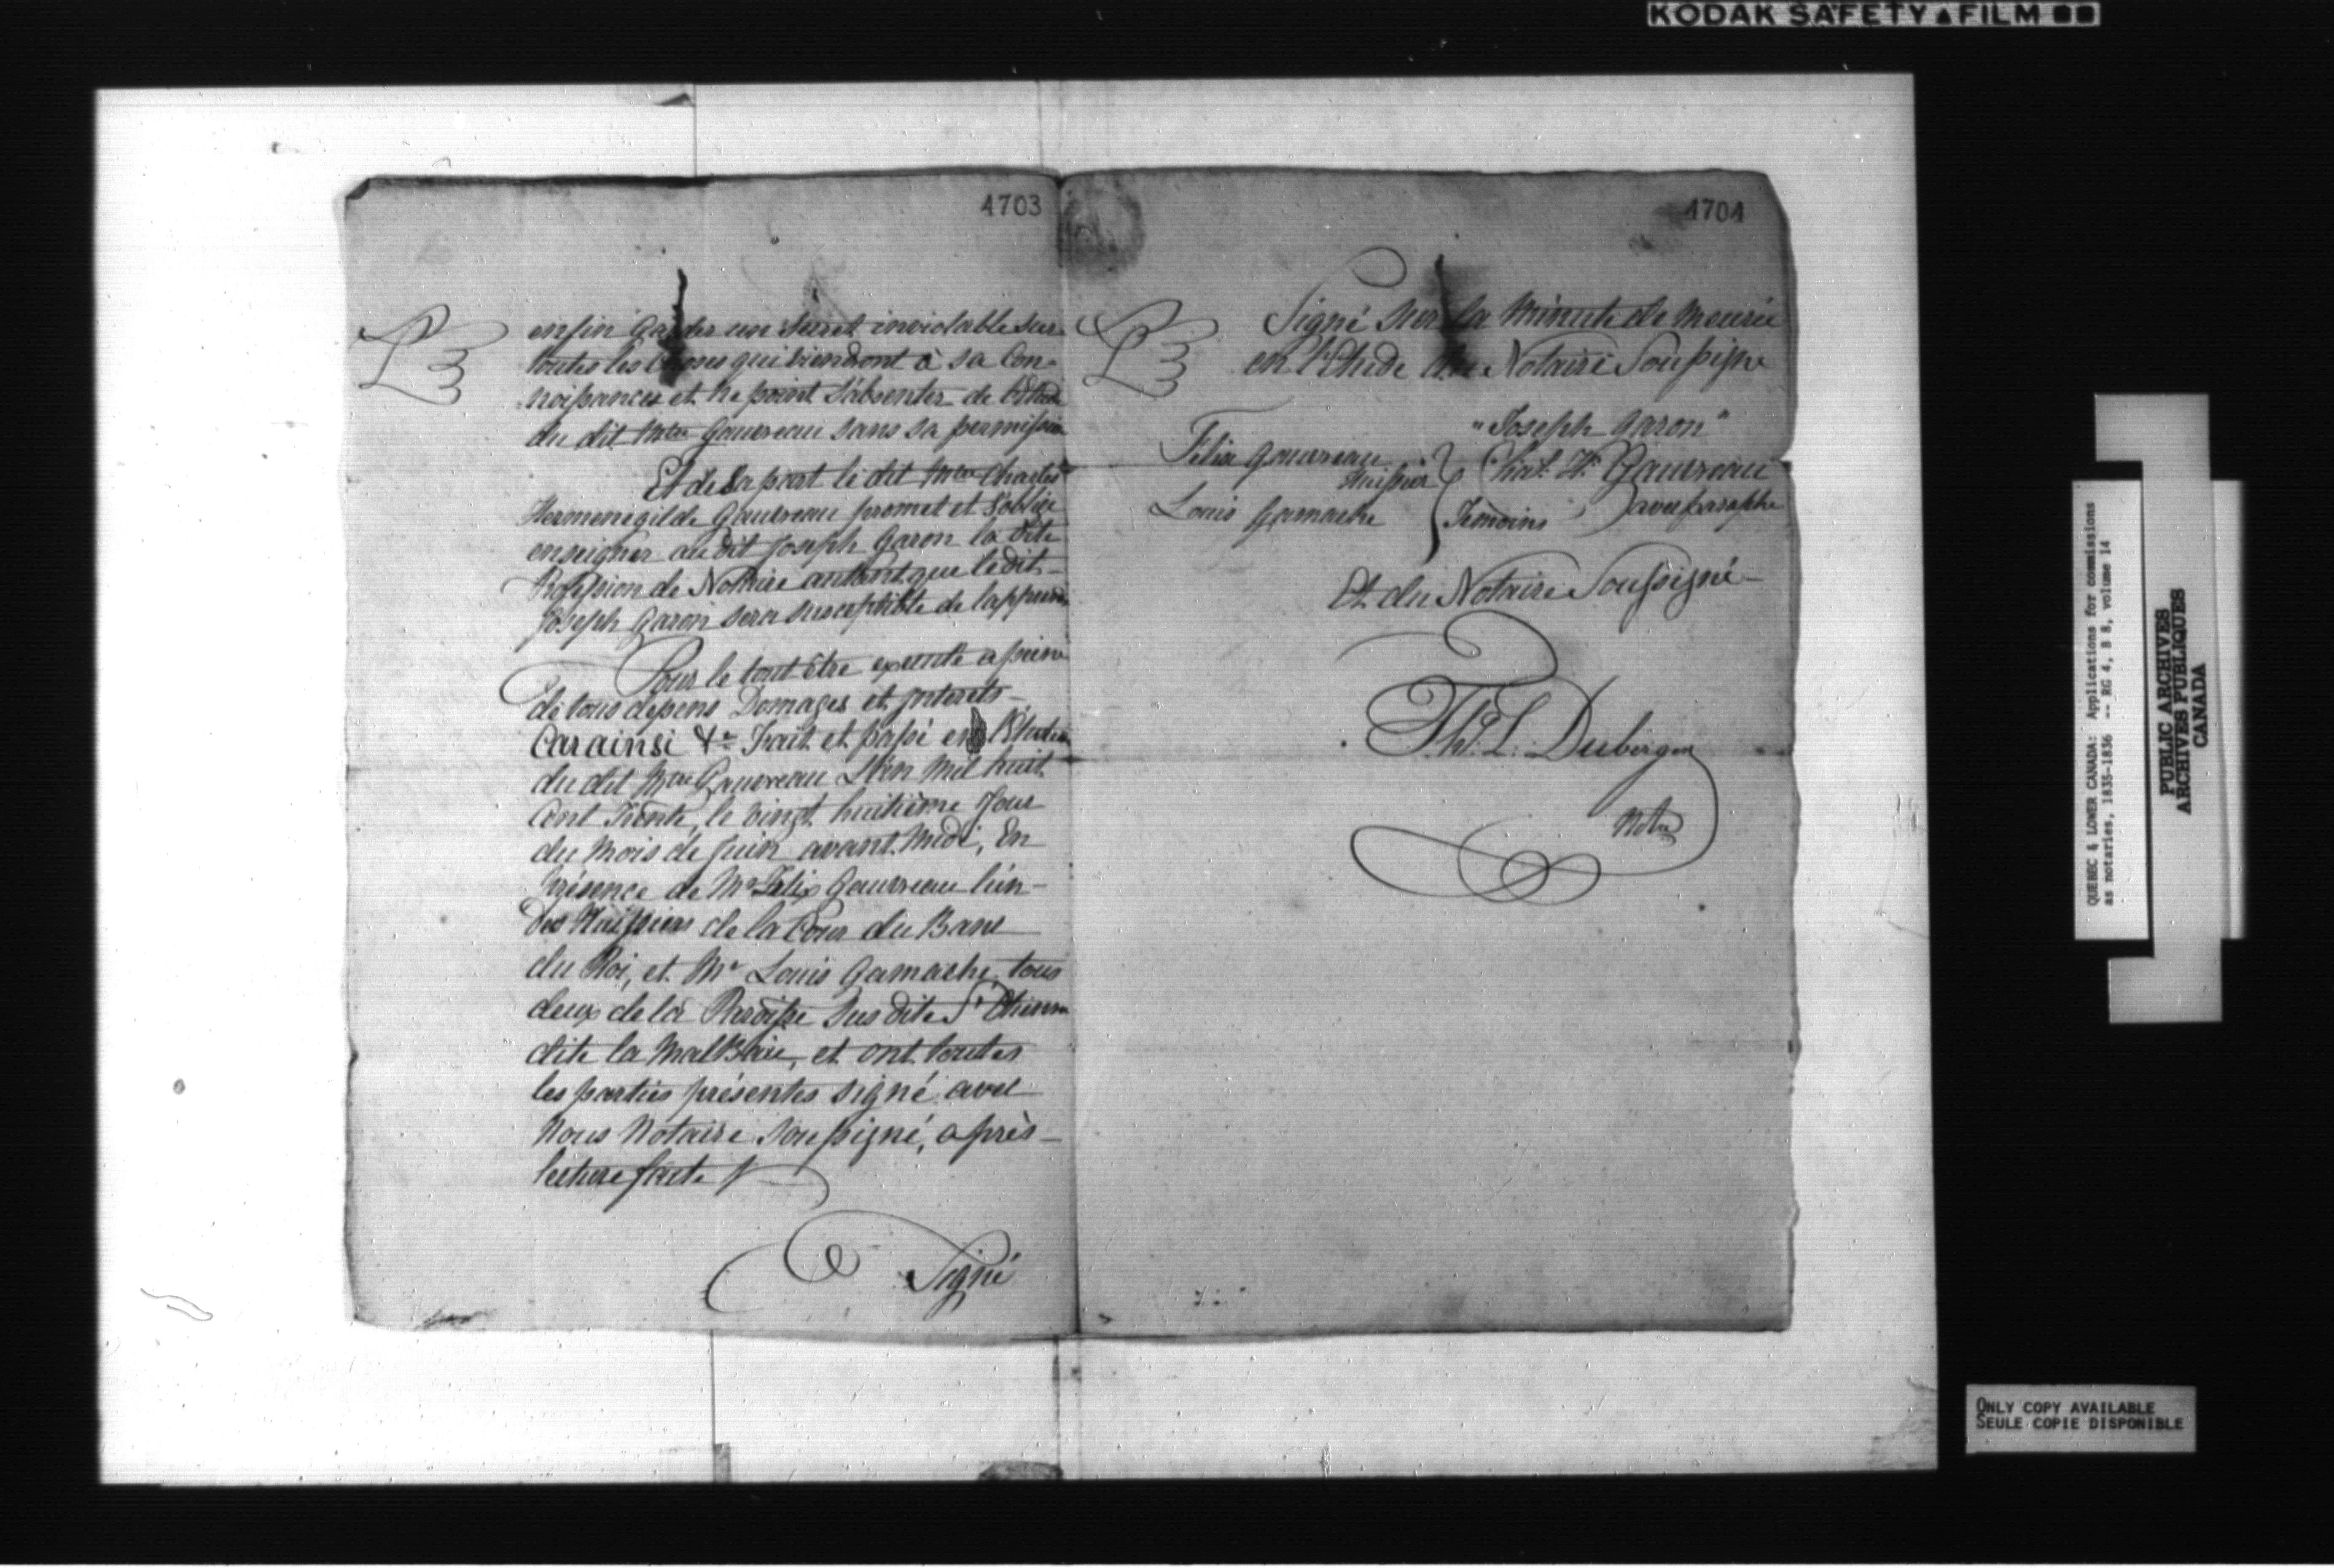 KODAK SAFETY FILM
4703
enfin garder un secret inviolable sur
toutes les choses qui viendront à sa con-
noissances et ne point s'absenter de l'Etude
du dit Mtre Gauvreau sans sa permission
Et de sa part le dit Mtre Charles
Hermenegilde Gauvreau promet et s'oblige
enseigner au dit Joseph Garon la dite
Profession de Notaire autant que le dit
Joseph Garon sera susceptible de l'apprendre
Pour le tout être executé a peine
de tous depens Domages et interets
Car ainsi &a Fait et passé en l'Etude
du dit Mtre Gauvreau L'an mil huit
cent Trente, le vingt huitième Jour
du mois de Juin avant midi, En
présence de Mr Felix Gauvreau l'un
des Huissiers de la Cour du Banc
du Roi, et Mr Louis Gamache, tous
deux de la Paroisse susdite St Etienne
dite la MalBaie, et ont toutes
les parties présentes signé avec
nous Notaire soussigné, après
lecture faite
Signé
4704
Signé sur la minute demeurée
en l'Etude du Notaire Soussigné
"Joseph Garon"
Felix Gauvreau
Huissier
Chas. H. Gauvreau
Louis Gamache
Temoins
avec paraphe
Et du Notaire Soussigné
Ths. L. Duberger
Notre
QUEBEC & LOWER CANADA: Applications for commissions
as notaries, 1835-1836 -- RG 4, B 8, volume 14
PUBLIC ARCHIVES
ARCHIVES PUBLIQUES
CANADA
ONLY COPY AVAILABLE
SEULE COPIE DISPONIBLE